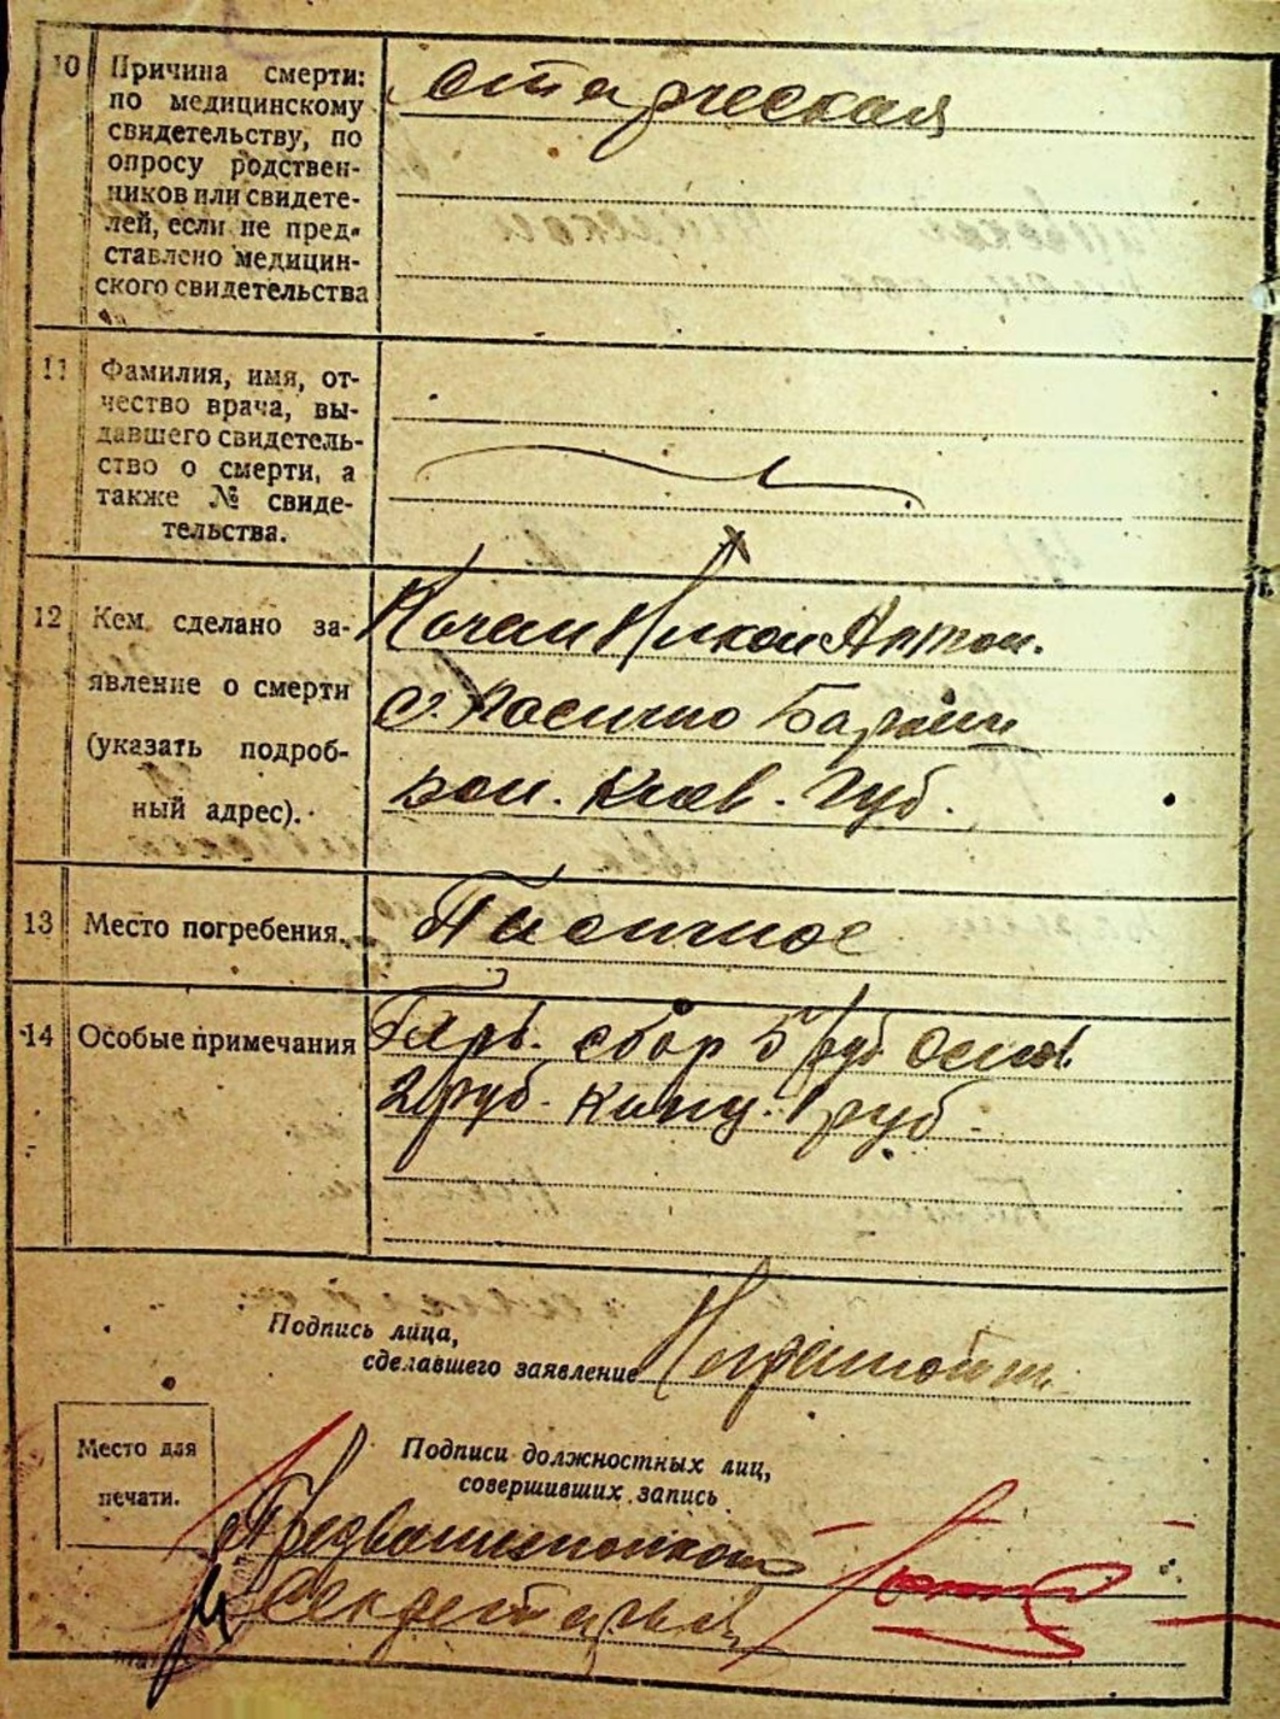 10 Причина смерти:
по медицинскому
свидетельству, по
опросу родствен-
ников или свидете-
лей, если не пред-
ставлено медицин-
ского свидетельства
старческая
11 Фамилия, имя, от-
чество врача, вы-
давшего свидетель-
ство о смерти, а
также № свиде-
тельства.
12 Кем сделано за-
явление о смерти
(указать подроб-
ный адрес).
Кочан Никон Антон.
с. Посично Барашн
вол. Киев. Губ.
13 Место погребения.
Писичное
14 Особые примечания
Герб. сбор 5 руб. Основ.
2 руб. канц. 1 руб.
Подпись лица,
сделавшего заявление
Неграмотн
Место для
печати.
Подписи должностных лиц,
совершивших запись
Предволисполкома
Секретарь